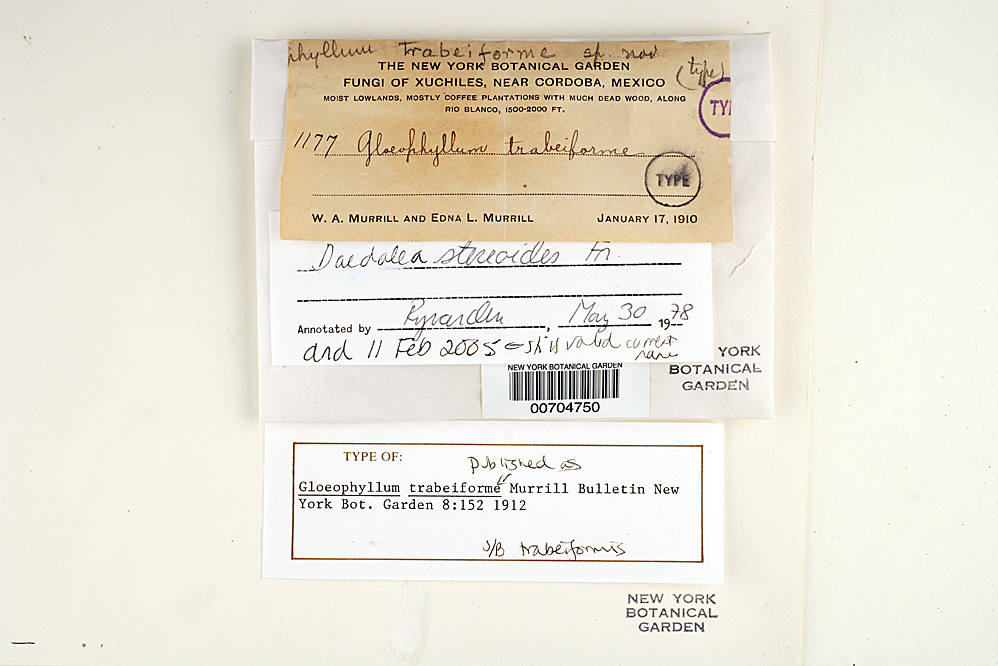 phyllum trabeiforme sp. nov.
(type)
THE NEW YORK BOTANICAL GARDEN
FUNGI OF XUCHILES, NEAR CORDOBA, MEXICO
MOIST LOWLANDS, MOSTLY COFFEE PLANTATIONS WITH MUCH DEAD WOOD, ALONG
RIO BLANCO, 1500-2000 FT.
TY
1177 Gloeophyllum trabeiforme
TYPE
W. A. MURRILL AND EDNA L. MURRILL JANUARY 17, 1910
Daedalea stereoides Fr.
Annotated by Ryvarden, May 30 1978
and 11 Feb 2005 still valid current
name
NEW YORK BOTANICAL GARDEN
00704750
YORK
BOTANICAL
GARDEN
TYPE OF:
published as
Gloeophyllum trabeiforme Murrill Bulletin New
York Bot. Garden 8:152 1912
S/B trabeiformis
NEW YORK
BOTANICAL
GARDEN